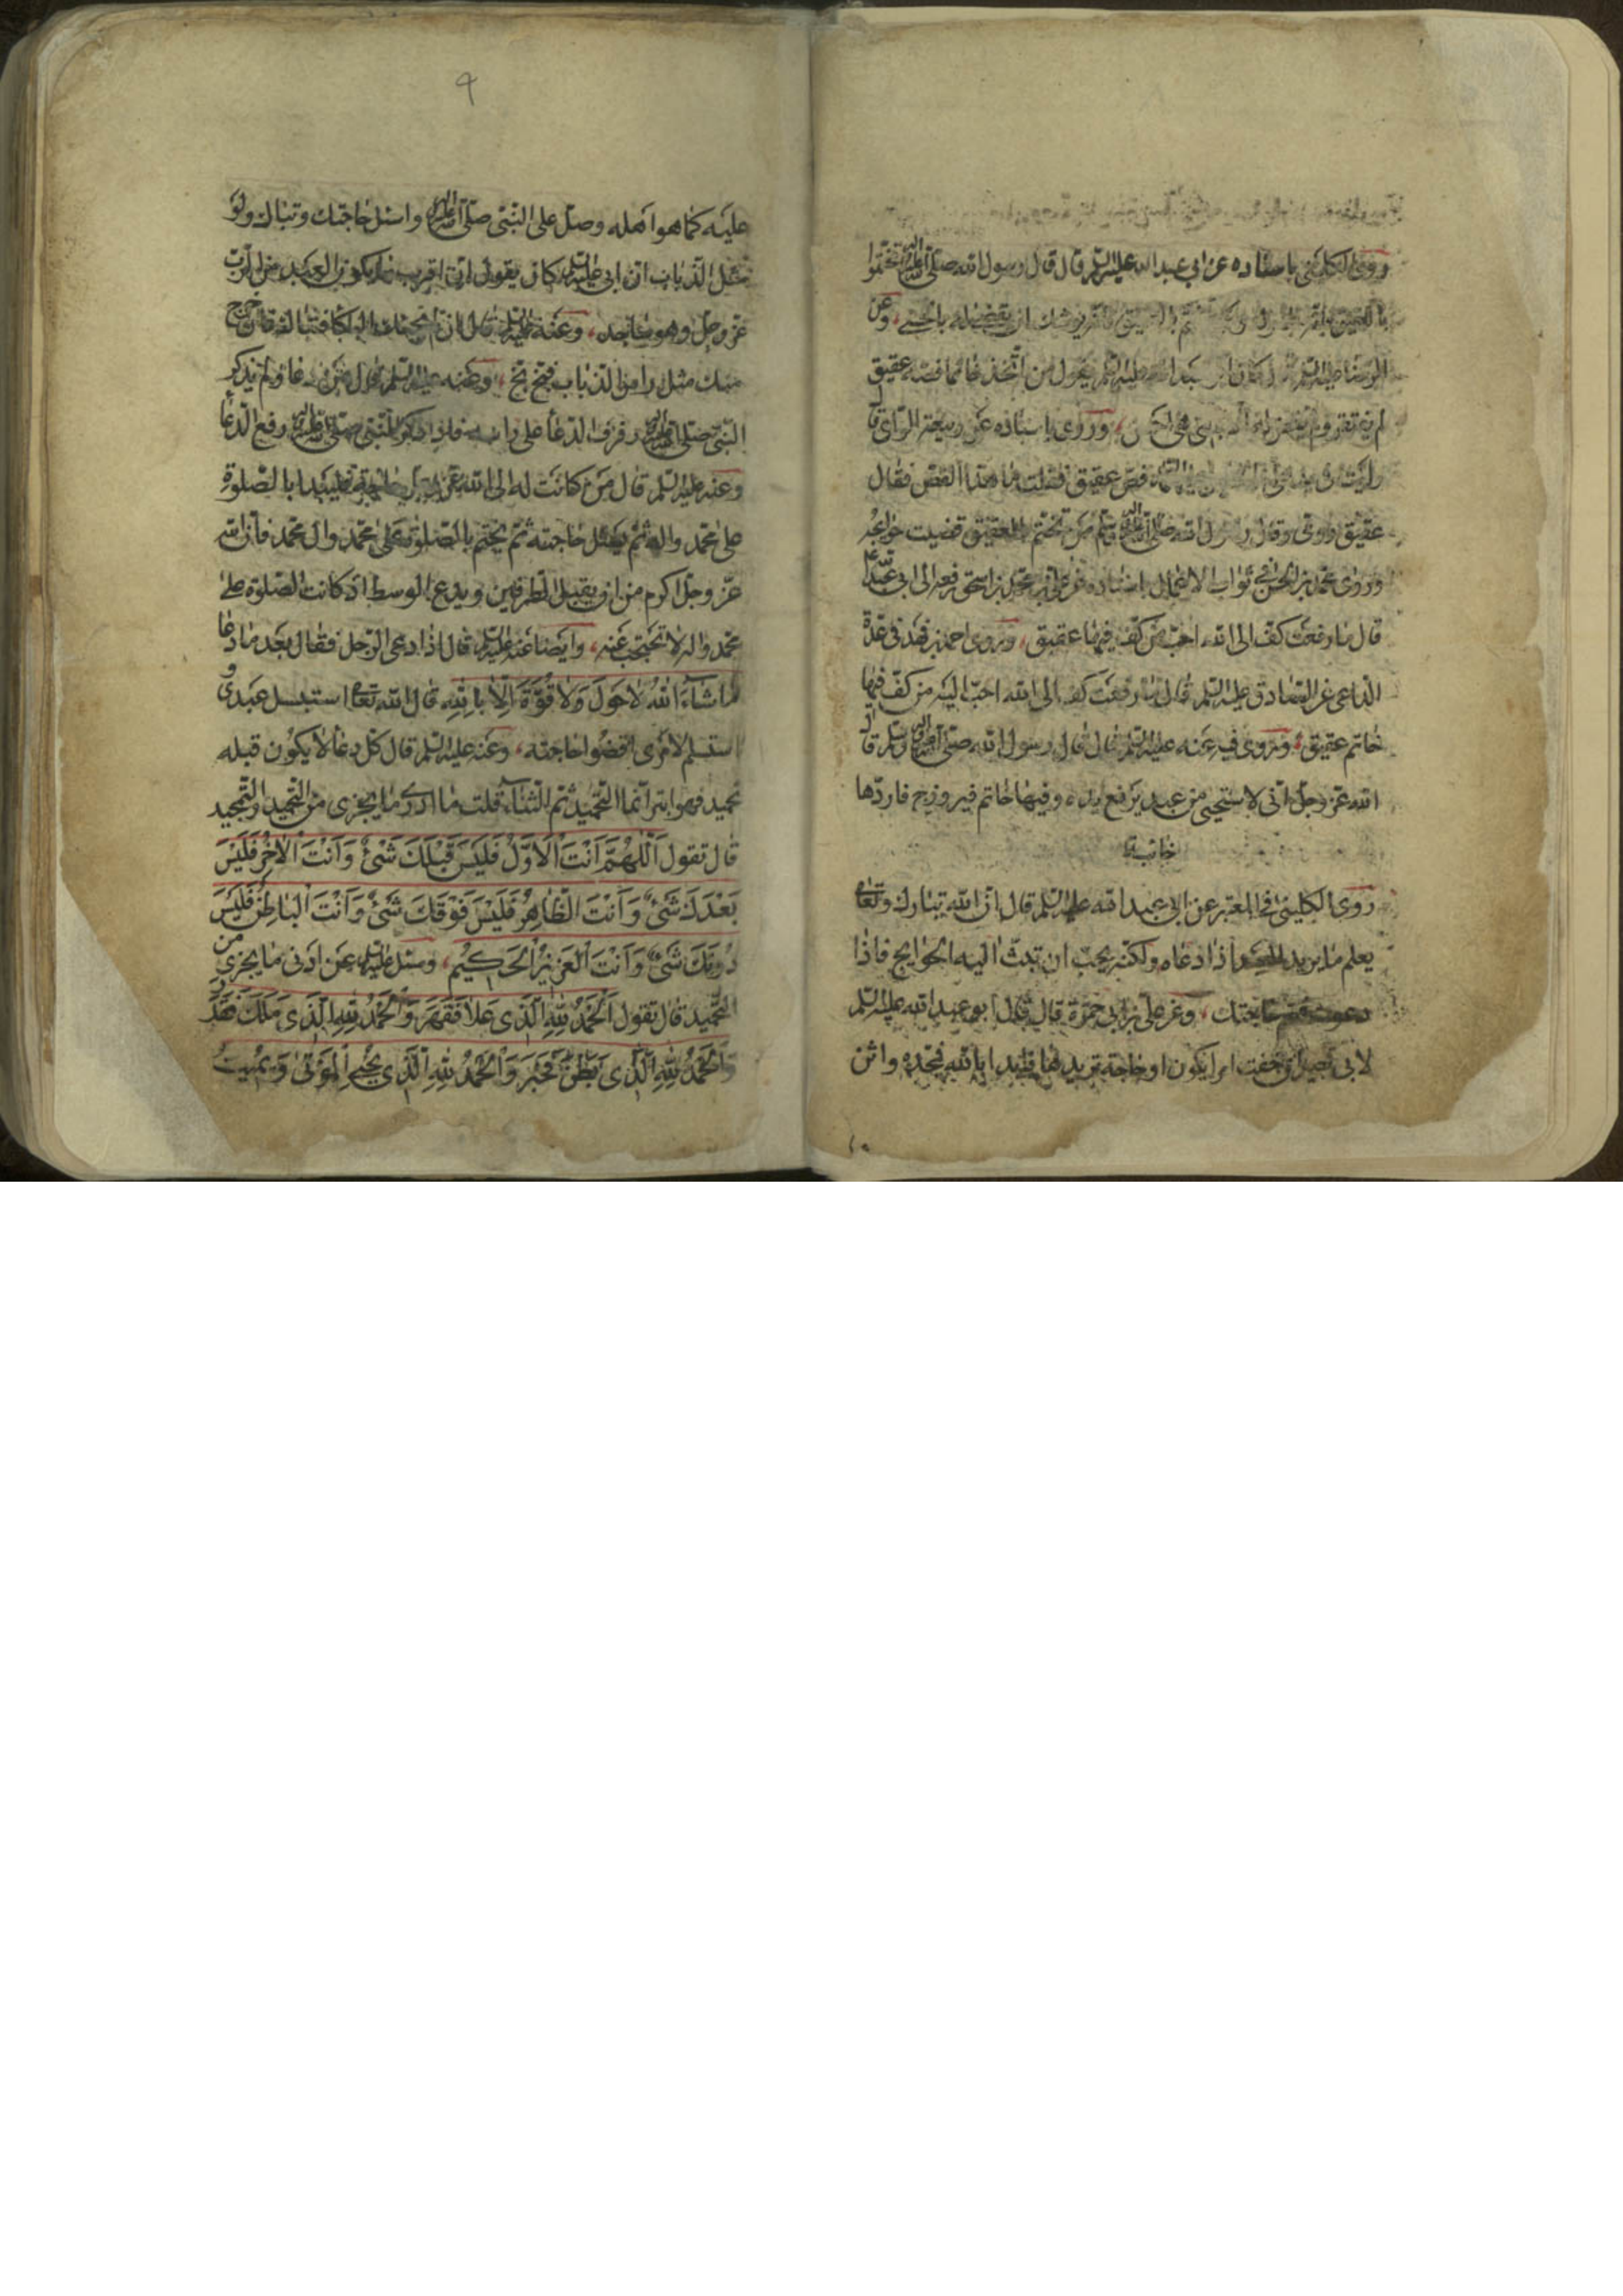 روى الكلينى باسناده عن ابى عبد الله عليه السلم قال قال رسول الله صلى الله عليه تختموا
بالعقيق فانه مبارك ومن تختم بالعقيق يوشك ان يقضى له بالحسنى وعن
الرضا عليه السلم قال كان ابو عبد الله عليه السلم يقول من اتخذ خاتما فصه عقيق
لم يفتقر ولم يقض له الا بالتى هى احسن وروى باسناده عن ربيعة الراى قا
رايت فى يد على بن الحسين عليه السلم فص عقيق فقلت ما هذا الفص فقال
عقيق رومى وقال رسول الله صلى الله عليه وسلم من تختم بالعقيق قضيت حوايجه
وروى محمد بن الحسن فى ثواب الاعمال اسناده عن على بن محمد بن اسحق رفعه الى ابى عبد الله
قال ما رفعت كف الى الله احب من كف فيها عقيق وروى احمد بن فهد فى عدة
الداعى عن الصادق عليه السلم قال ما رفعت كف الى الله احب اليه من كف فيها
خاتم عقيق وروى فيه عنه عليه السلم قال قال رسول الله صلى الله عليه وسلم قال
الله عز وجل انى لاستحيى من عبد يرفع يده وفيها خاتم فيروزج فاردها
خائبة
روى الكلينى فى المعتبر عن ابى عبد الله عليه السلم قال ان الله تبارك وتعالى
يعلم ما يريد العبد اذا دعاه ولكنه يحب ان تبث اليه الحوايج فاذا
دعوت فسم حاجتك وعن على بن ابى حمزة قال قال ابو عبد الله عليه السلم
لابى بصير ان خفت امرا يكون او حاجة تريدها فابدا بالله فمجده واثن
٩
عليه كما هو اهله وصل على النبى صلى الله عليه واسئل حاجتك وتباك ولو
مثل الذباب ان ابى عليه السلم كان يقول ان اقرب ما يكون العبد من الرب
عز وجل وهو ساجد وعنه عليه السلم قال ان لم يجئك البكا فتباك فان خرج
منك مثل راس الذباب فبخ بخ وعنه عليه السلم قال من دعا ولم يذكر
النبى صلى الله عليه رفرف الدعا على راسه فاذا ذكر النبى صلى الله عليه رفع الدعا
وعنه عليه السلم قال من كانت له الى الله عز وجل حاجة فليبدا بالصلوة
على محمد واله ثم يسئل حاجته ثم يختم بالصلوة على محمد وال محمد فان الله
عز وجل اكرم من ان يقبل الطرفين ويدع الوسط اذ كانت الصلوة على
محمد واله لا تحتجب عنه وايضا عنه عليه السلم قال اذا دعى الرجل فقال بعد ما دعا
ما شَآءَ اللهُ لا حَولَ وَلا قُوَّةَ اِلّا بِاللهِ قال الله تعالى استبسل عبدى و
استسلم لامرى اقضوا حاجته وعنه عليه السلم قال كل دعا لا يكون قبله
تحميد فهو ابتر انما التحميد ثم الثنآء قلت ما ادرى ما يجزى من التحميد والتمجيد
قال تقول اَللّهُمَّ اَنْتَ الْاَوَّلُ فَلَيْسَ قَبْلَكَ شَىْءٌ وَاَنْتَ الْاخِرُ فَلَيْسَ
بَعْدَكَ شَىْءٌ وَاَنْتَ الْظّاهِرُ فَلَيْسَ فَوْقَكَ شَىْءٌ وَاَنْتَ الْباطِنُ فَلَيْسَ
دُونَكَ شَىْءٌ وَاَنْتَ الْعَزِيزُ الْحَكيْمُ وسئل عليه السلم عن ادنى ما يجزى من
التحميد قال تقول اَلْحَمْدُ للهِ الَّذى عَلا فَقَهَرَ وَالْحَمْدُ للهِ الَّذى مَلَكَ فَقَدَرَ
وَالْحَمْدُ للهِ الَّذى بَطَنَ فَخَبَرَ وَالْحَمْدُ للهِ الَّذى يُحْيِى الْمَوْتى وَيُمْيتُ